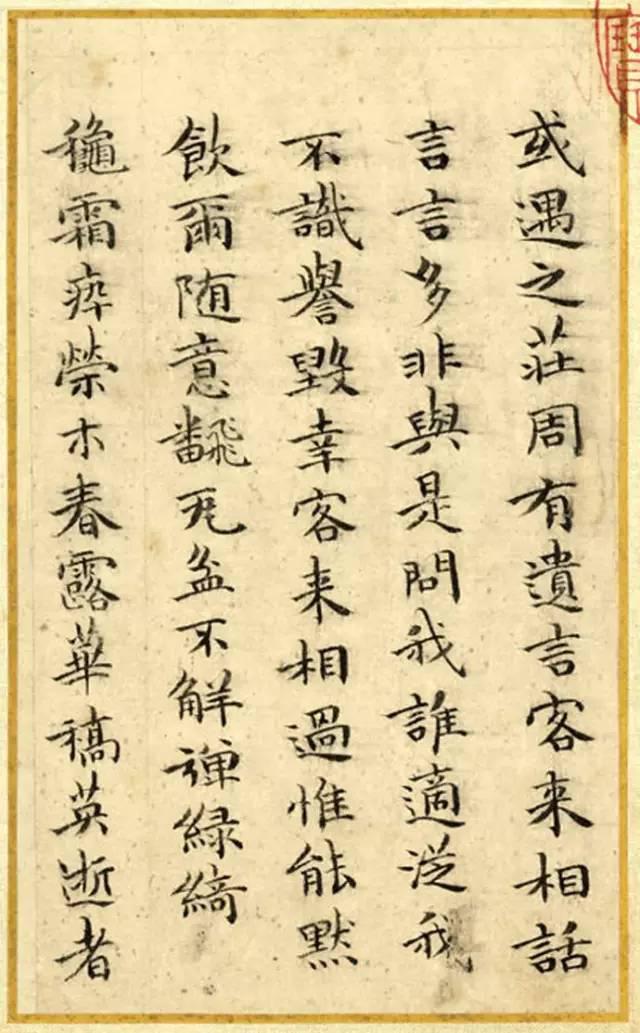 或遇之莊周有遺言客来相話
言言多非與是問我誰適従我
不識譽毀幸客来相過惟能默
飲爾随意飜瓦盆不觧弾緑綺
龝霜瘁榮木春露華稿英逝者